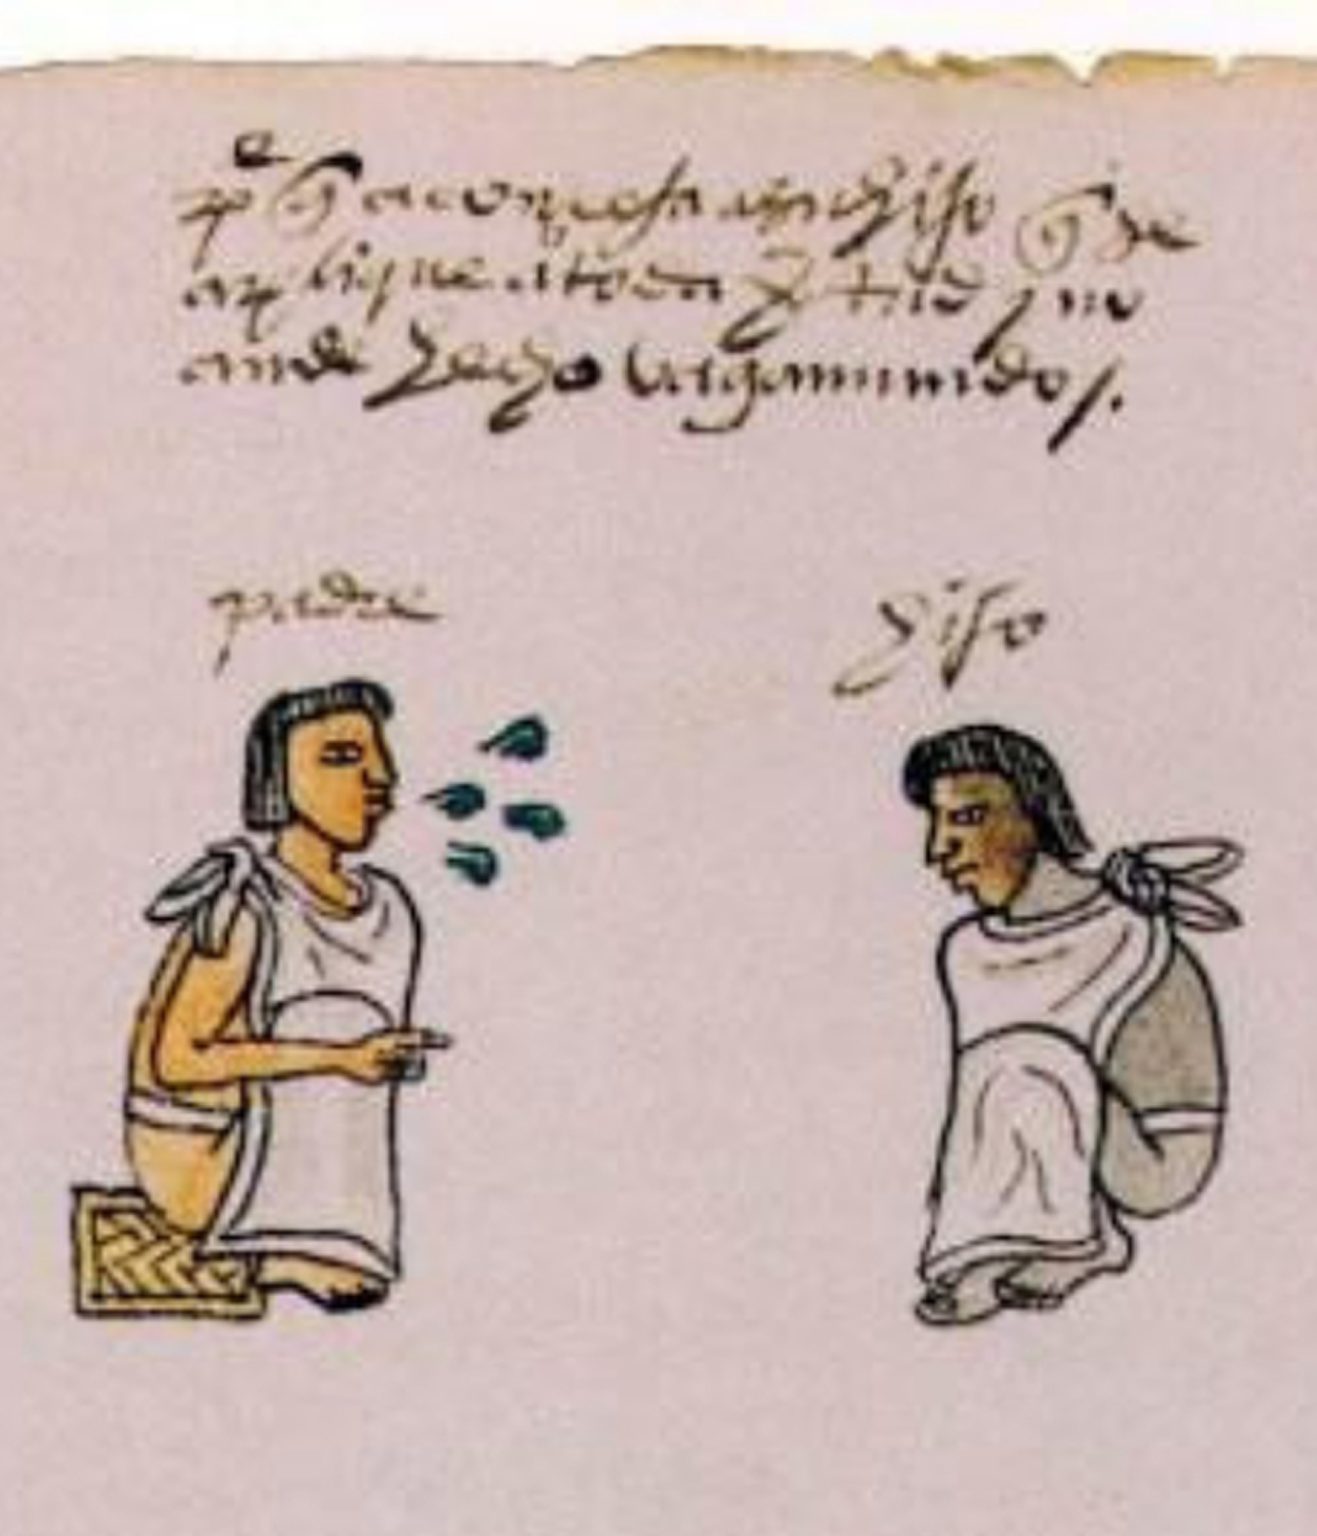 pe q aconseja hijo q se
aplique a toda virtud y no
ande hecho vagamundos.
padre
hijo